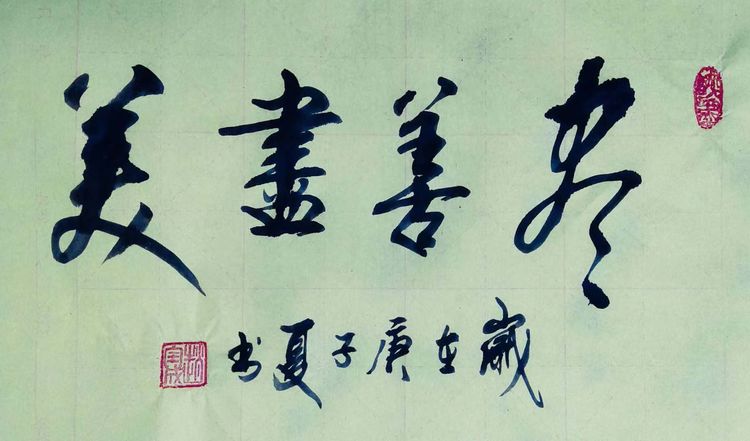 尽善盡美
歲在庚子夏书